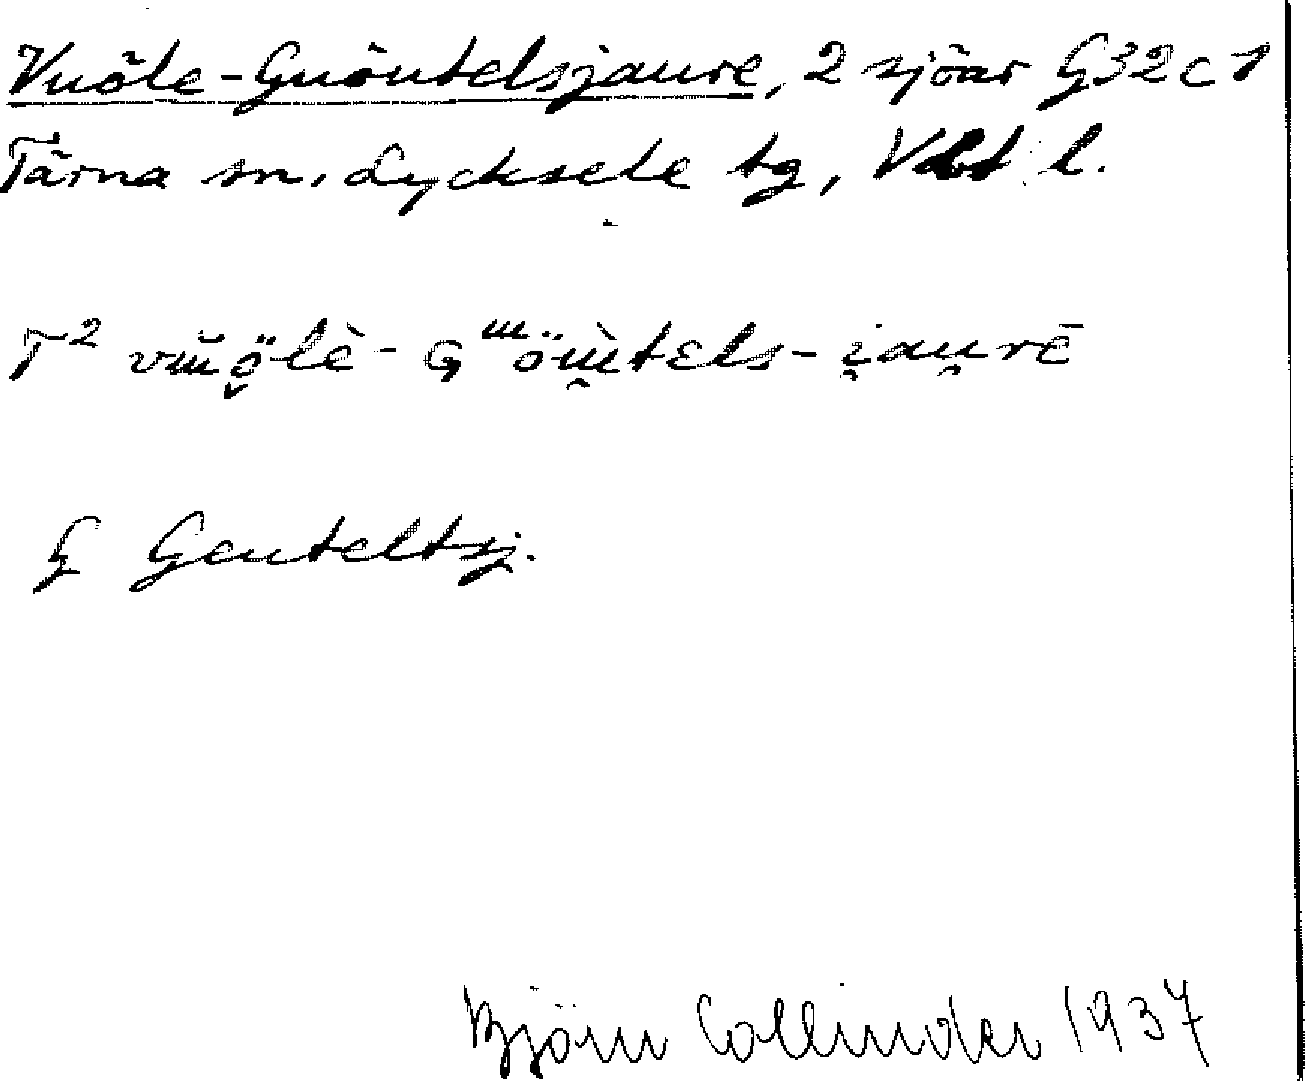 Vuöle-Guöutelsjaure, 2 sjöar G32c1
Tärna sn, Lycksele tg, Vbt l.
T² vɯ̆ö̤lè- Gᵚöɯ̯̀tels-i̯au̯rē
G Geuteltsj.
Björn Collinder 1937